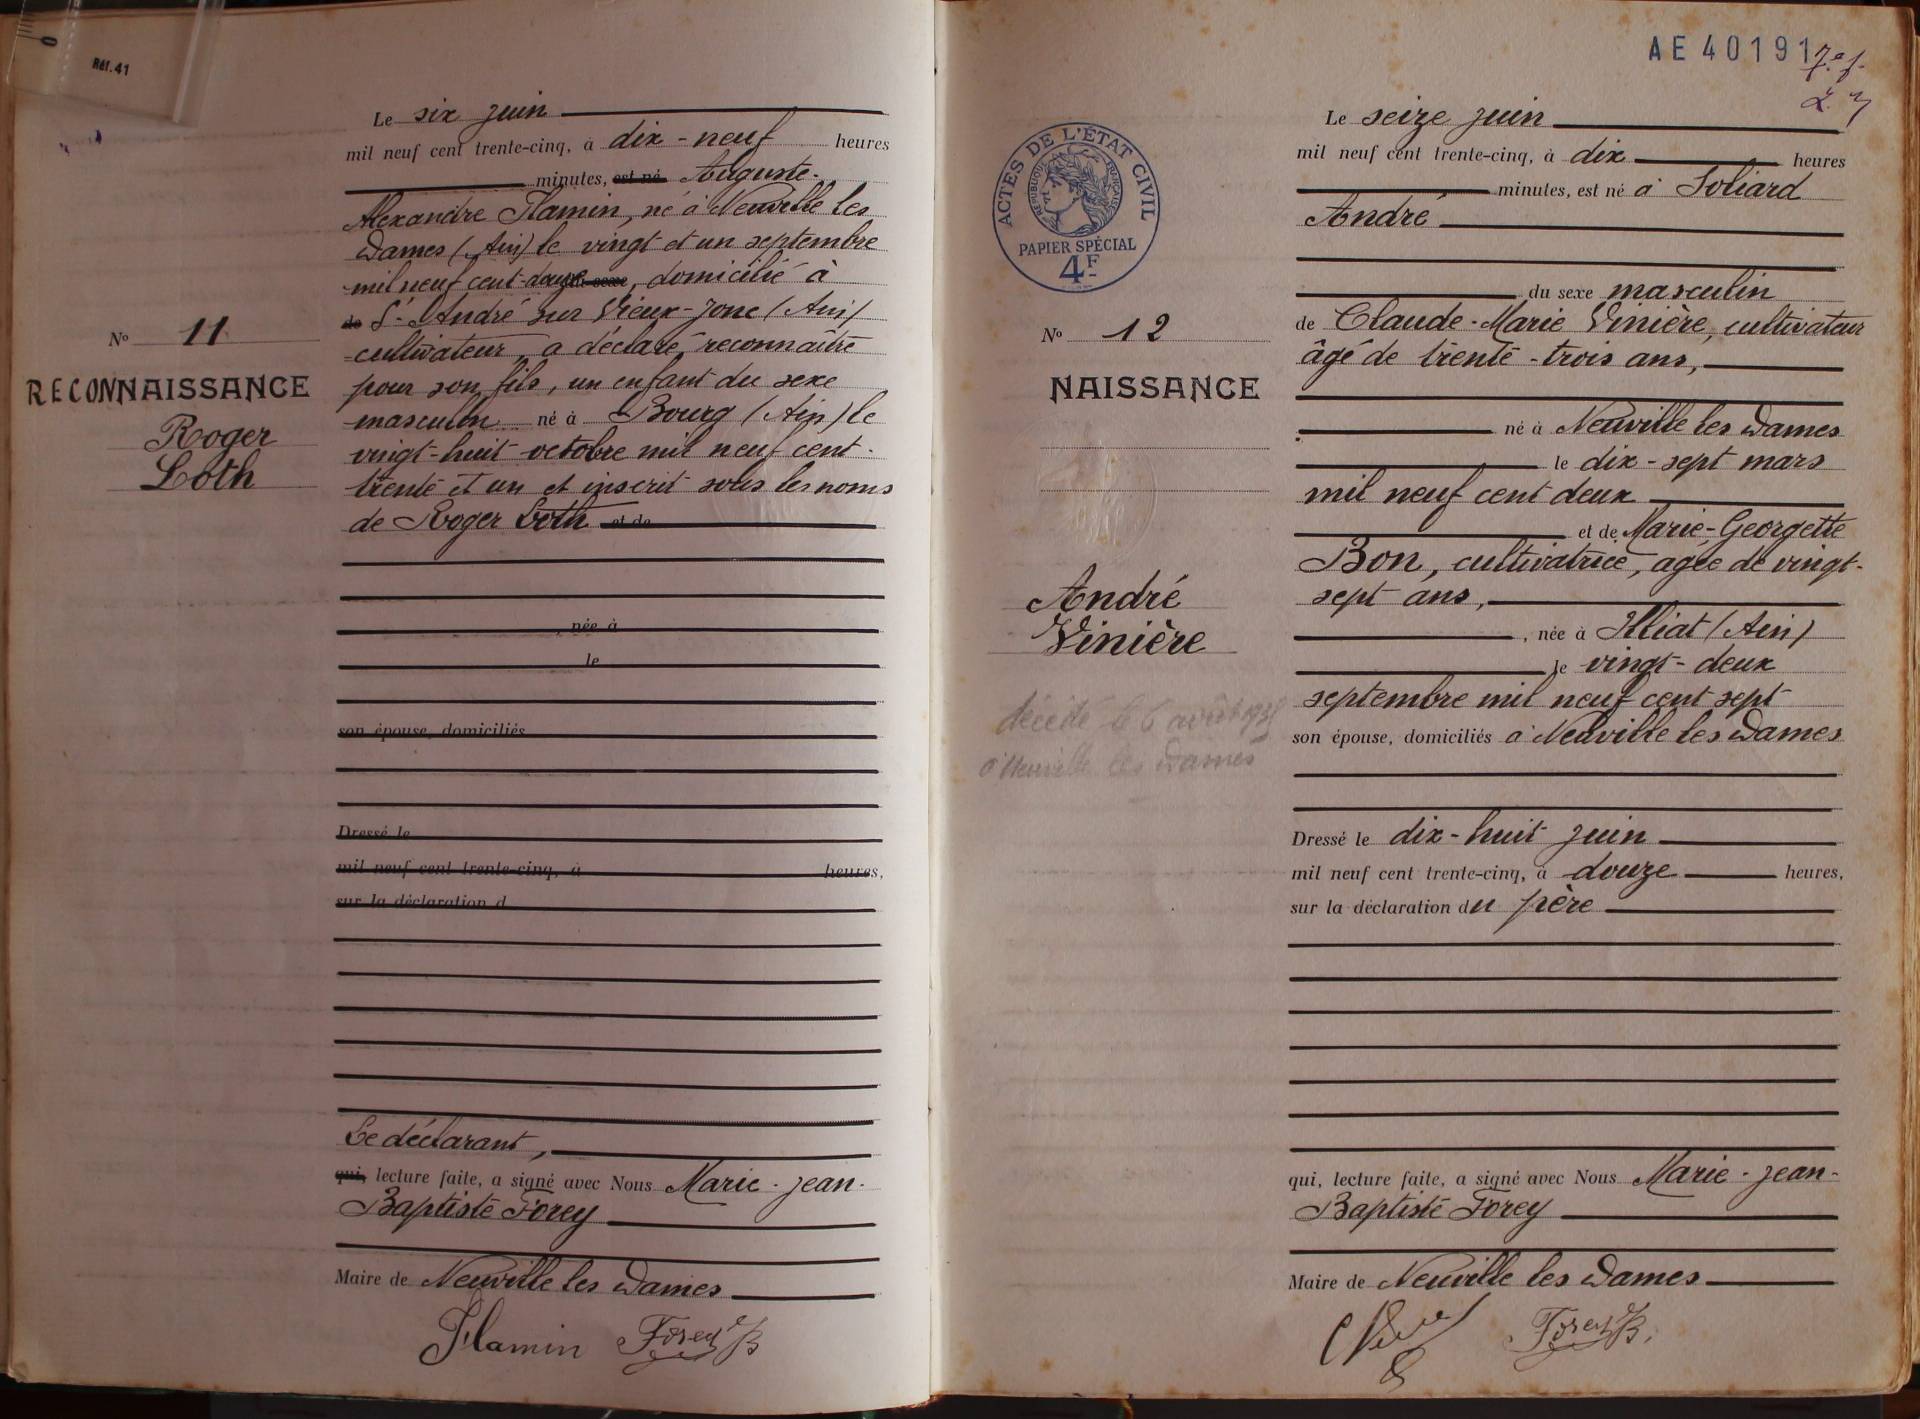 Réf.41
Le six juin
mil neuf cent trente-cinq, à dix-neuf heures
minutes, est né Auguste-
Alexandre Flamin, né à Neuville les
Dames (Ain) le vingt et un septembre
mil neuf cent douze, domicilié à
de St André sur Vieux-Jonc (Ain)
cultivateur, a déclaré reconnaître
pour son fils, un enfant du sexe
masculin né à Bourg (Ain) le
vingt-huit octobre mil neuf cent
trente et un et inscrit sous les noms
de Roger Loth et de
, née à
le
son épouse, domiciliés
Dressé le
mil neuf cent trente-cinq, à heures,
sur la déclaration d
Le déclarant,
qui, lecture faite, a signé avec Nous Marie-Jean-
Baptiste Forey
Maire de Neuville les Dames
Flamin Forey JB
No 11
RECONNAISSANCE
Roger
Loth
AE 40191
ACTES DE L'ÉTAT CIVIL
RÉPUBLIQUE FRANÇAISE
PAPIER SPÉCIAL
4F
No 12
NAISSANCE
André
Vinière
décédé le 6 août 193
à Neuville les Dames
Le seize juin
mil neuf cent trente-cinq, à dix heures
minutes, est né à Soliard
André
du sexe masculin
de Claude-Marie Vinière, cultivateur
âgé de trente-trois ans,
né à Neuville les Dames
le dix-sept mars
mil neuf cent deux
et de Marie-Georgette
Bon, cultivatrice, agée de vingt-
sept ans,
, née à Illiat (Ain)
le vingt-deux
septembre mil neuf cent sept
son épouse, domiciliés à Neuville les Dames
Dressé le dix-huit juin
mil neuf cent trente-cinq, à douze heures,
sur la déclaration du père
qui, lecture faite, a signé avec Nous Marie-Jean-
Baptiste Forey
Maire de Neuville les Dames
Forey JB